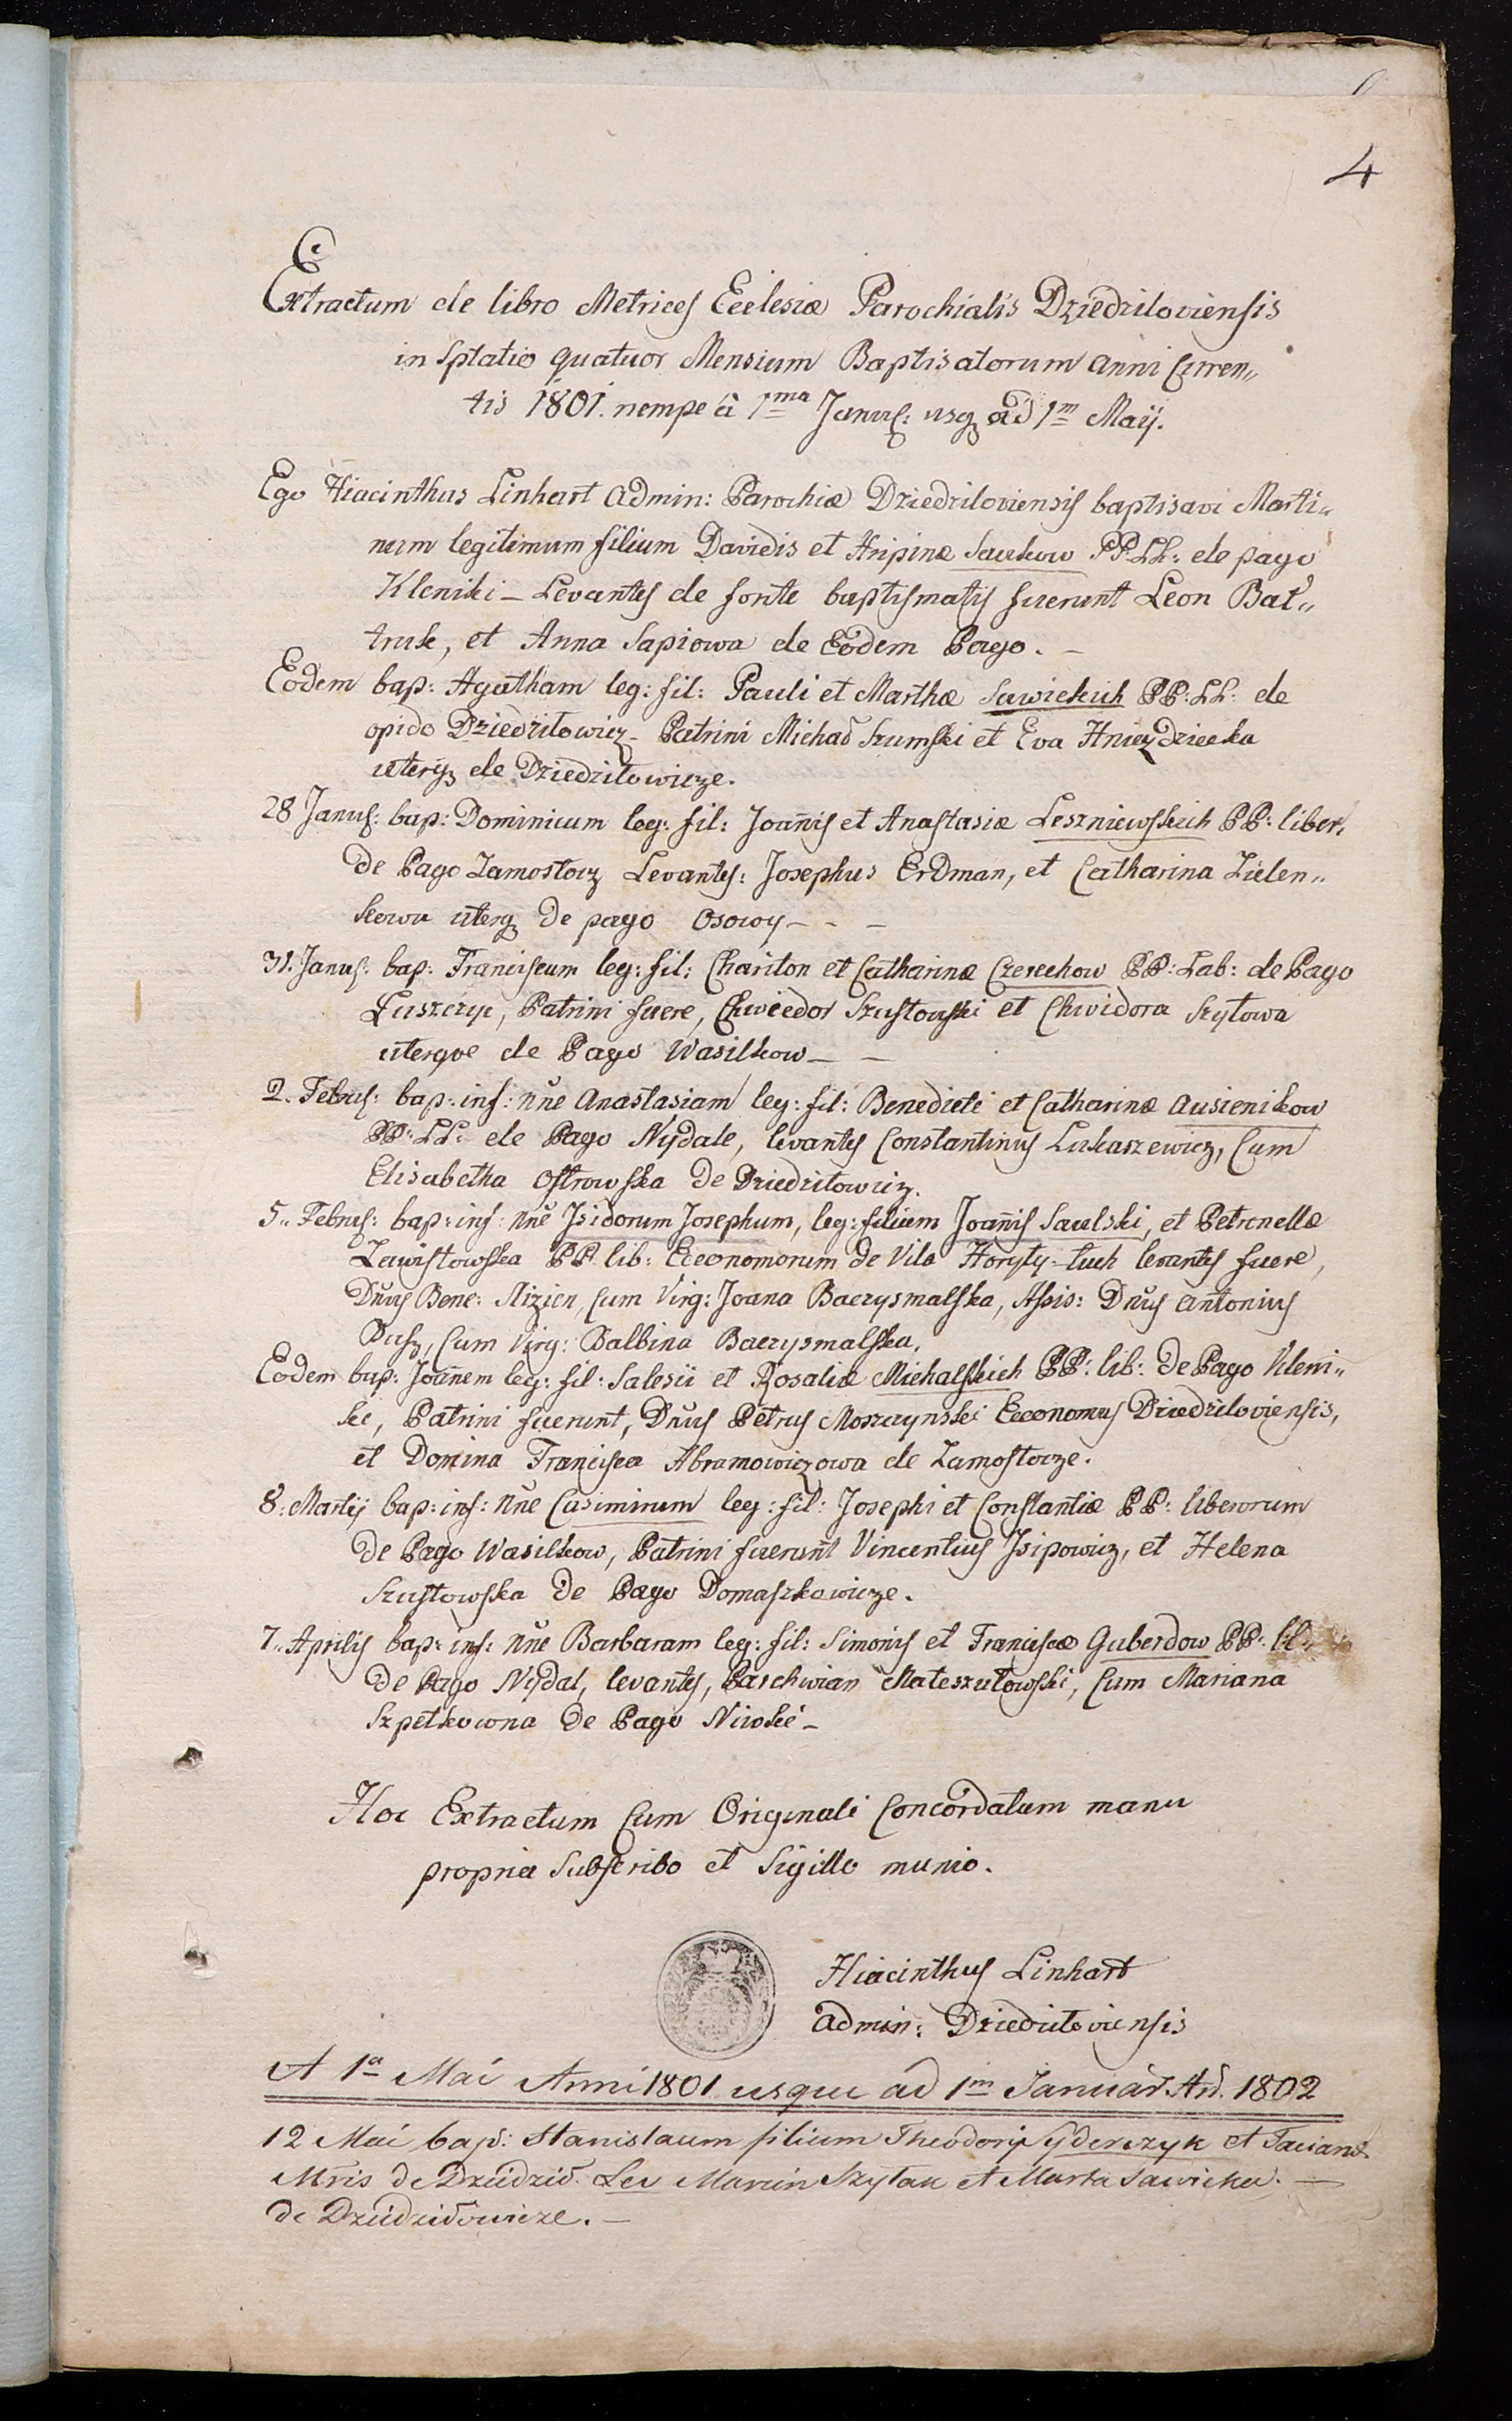 4
Extractum de libro Metrices Ecclesiæ Parochialis Dziedziloviensis
in Sptatio quatuor Mensium Baptisatorum anni Curren„
tis 1801. nempe à 1ma Janus: usq ad 1m Maij.
Ego Hiacinthus Linhart Admin: Parochiæ Dziedziloviensis baptisavi Marti„
num legitimum filium Davidis et Aripinæ Saukow PP: LL: de pago
Kleniki – Levantes de fonte baptismatis fuerunt Leon Bał„
truk, et Anna Sapiowa de Eodem Pago. –
Eodem bap: Agatham leg: fil: Pauli et Marthæ Sawickich PP: LL: de
opido Dziedziłowicz – Patrini Michał Szumski et Eva Hniezdziecka
uterq de Dziedziłowicze.
28 Janus: bap: Dominicum leg: fil: Joañis et Anastasiæ Leszniewskich PP: liber,
de Pago Zamostocz Levantes: Josephus Erdman, et Catharina Zielen„
kowa uterq de pago Osowy – – –
31. Janus: bap: Franciscum leg: fil: Chariton et Catharinæ Czerechow PP: Lab: de Pago
Luszczyc, Patrini fuere, Chwiedor Szustowski et Chwidora Szytowa
uterqve de Pago Wasilkow – –
2. Februs: bap: inf: nñe Anastasiam leg: fil: Benedicti et Catharinæ Ausienikow
PP: LL: de Pago Nydale, levantes Constantinus Lukaszewicz, Cum
Elisabetha Ostrowska de Dziedziłowicz.
5„ Februs: bap: inf: nñe Isidorum Josephum, leg: filium Joañis Saulski, et Petronellæ
Zawistowska PP lib: Economorum de Vila Horyty-Łuch levantes fuere,
Dñus Bene: Nizien, Cum Virg: Joana Baczysmalska, Assis: Dñus Antonius
Dusz, Cum Virg: Balbina Baczysmalska.
Eodem bap: Joañem leg: fil: Salesii et Rosaliæ Michalskich PP: lib: de Pago Kleni„
ki, Patrini fuerunt, Dñus Petrus Moszczynski Economus Dziedziloviensis,
et Domina Francisca Abramowiczowa de Zamostocze.
8. Martij bap: inf: nñe Casimirum leg: fil: Josephi et Constantiæ PP: liberorum
de Pago Wasilkow, Patrini fuerunt Vincentius Isipowicz, et Helena
Szustowska de Pago Domaszkowicze.
7„ Aprilis bap: inf: nñe Barbaram leg: fil: Simonis et Franciscæ Guberdow PP:
de Pago Nydal, levantes, Parchwian Mateszułowski, Cum Mariana
Szpetkowna de Pago Niwki –
Hoc Extractum Cum Originali Concordatum manu
propria Subscribo et Sigillo munio.
Hiacinthus Linhart
Admin: Dziedziloviensis
A 1a Mai Anni 1801 usque ad 1m Januar. An. 1802
12 Mai bap: Stanislaum filium Theodori Syderczyk et Tacianæ
Mris de Dziedził. Lev Marcin Szytau et Marta Sawicka. –
de Dziedziłowicze. –